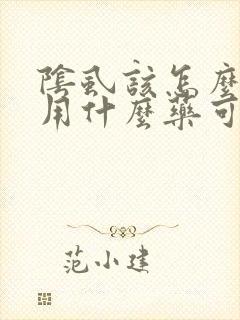 陰虱該怎麼
用什麼藥可
范小建